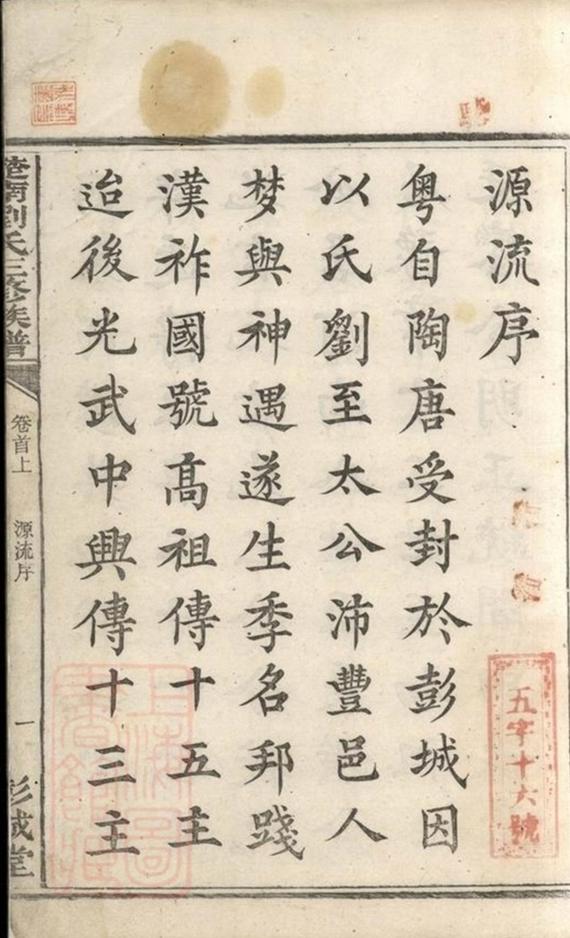 源流序
粤自陶唐受封於彭城因
以氏劉至太公沛豐邑人
梦與神遇遂生季名邦踐
漢祚國號高祖傳十五主
迨後光武中興傳十三主
劉氏三修族譜
卷首上
源流序
一
彭城堂
五字十六號